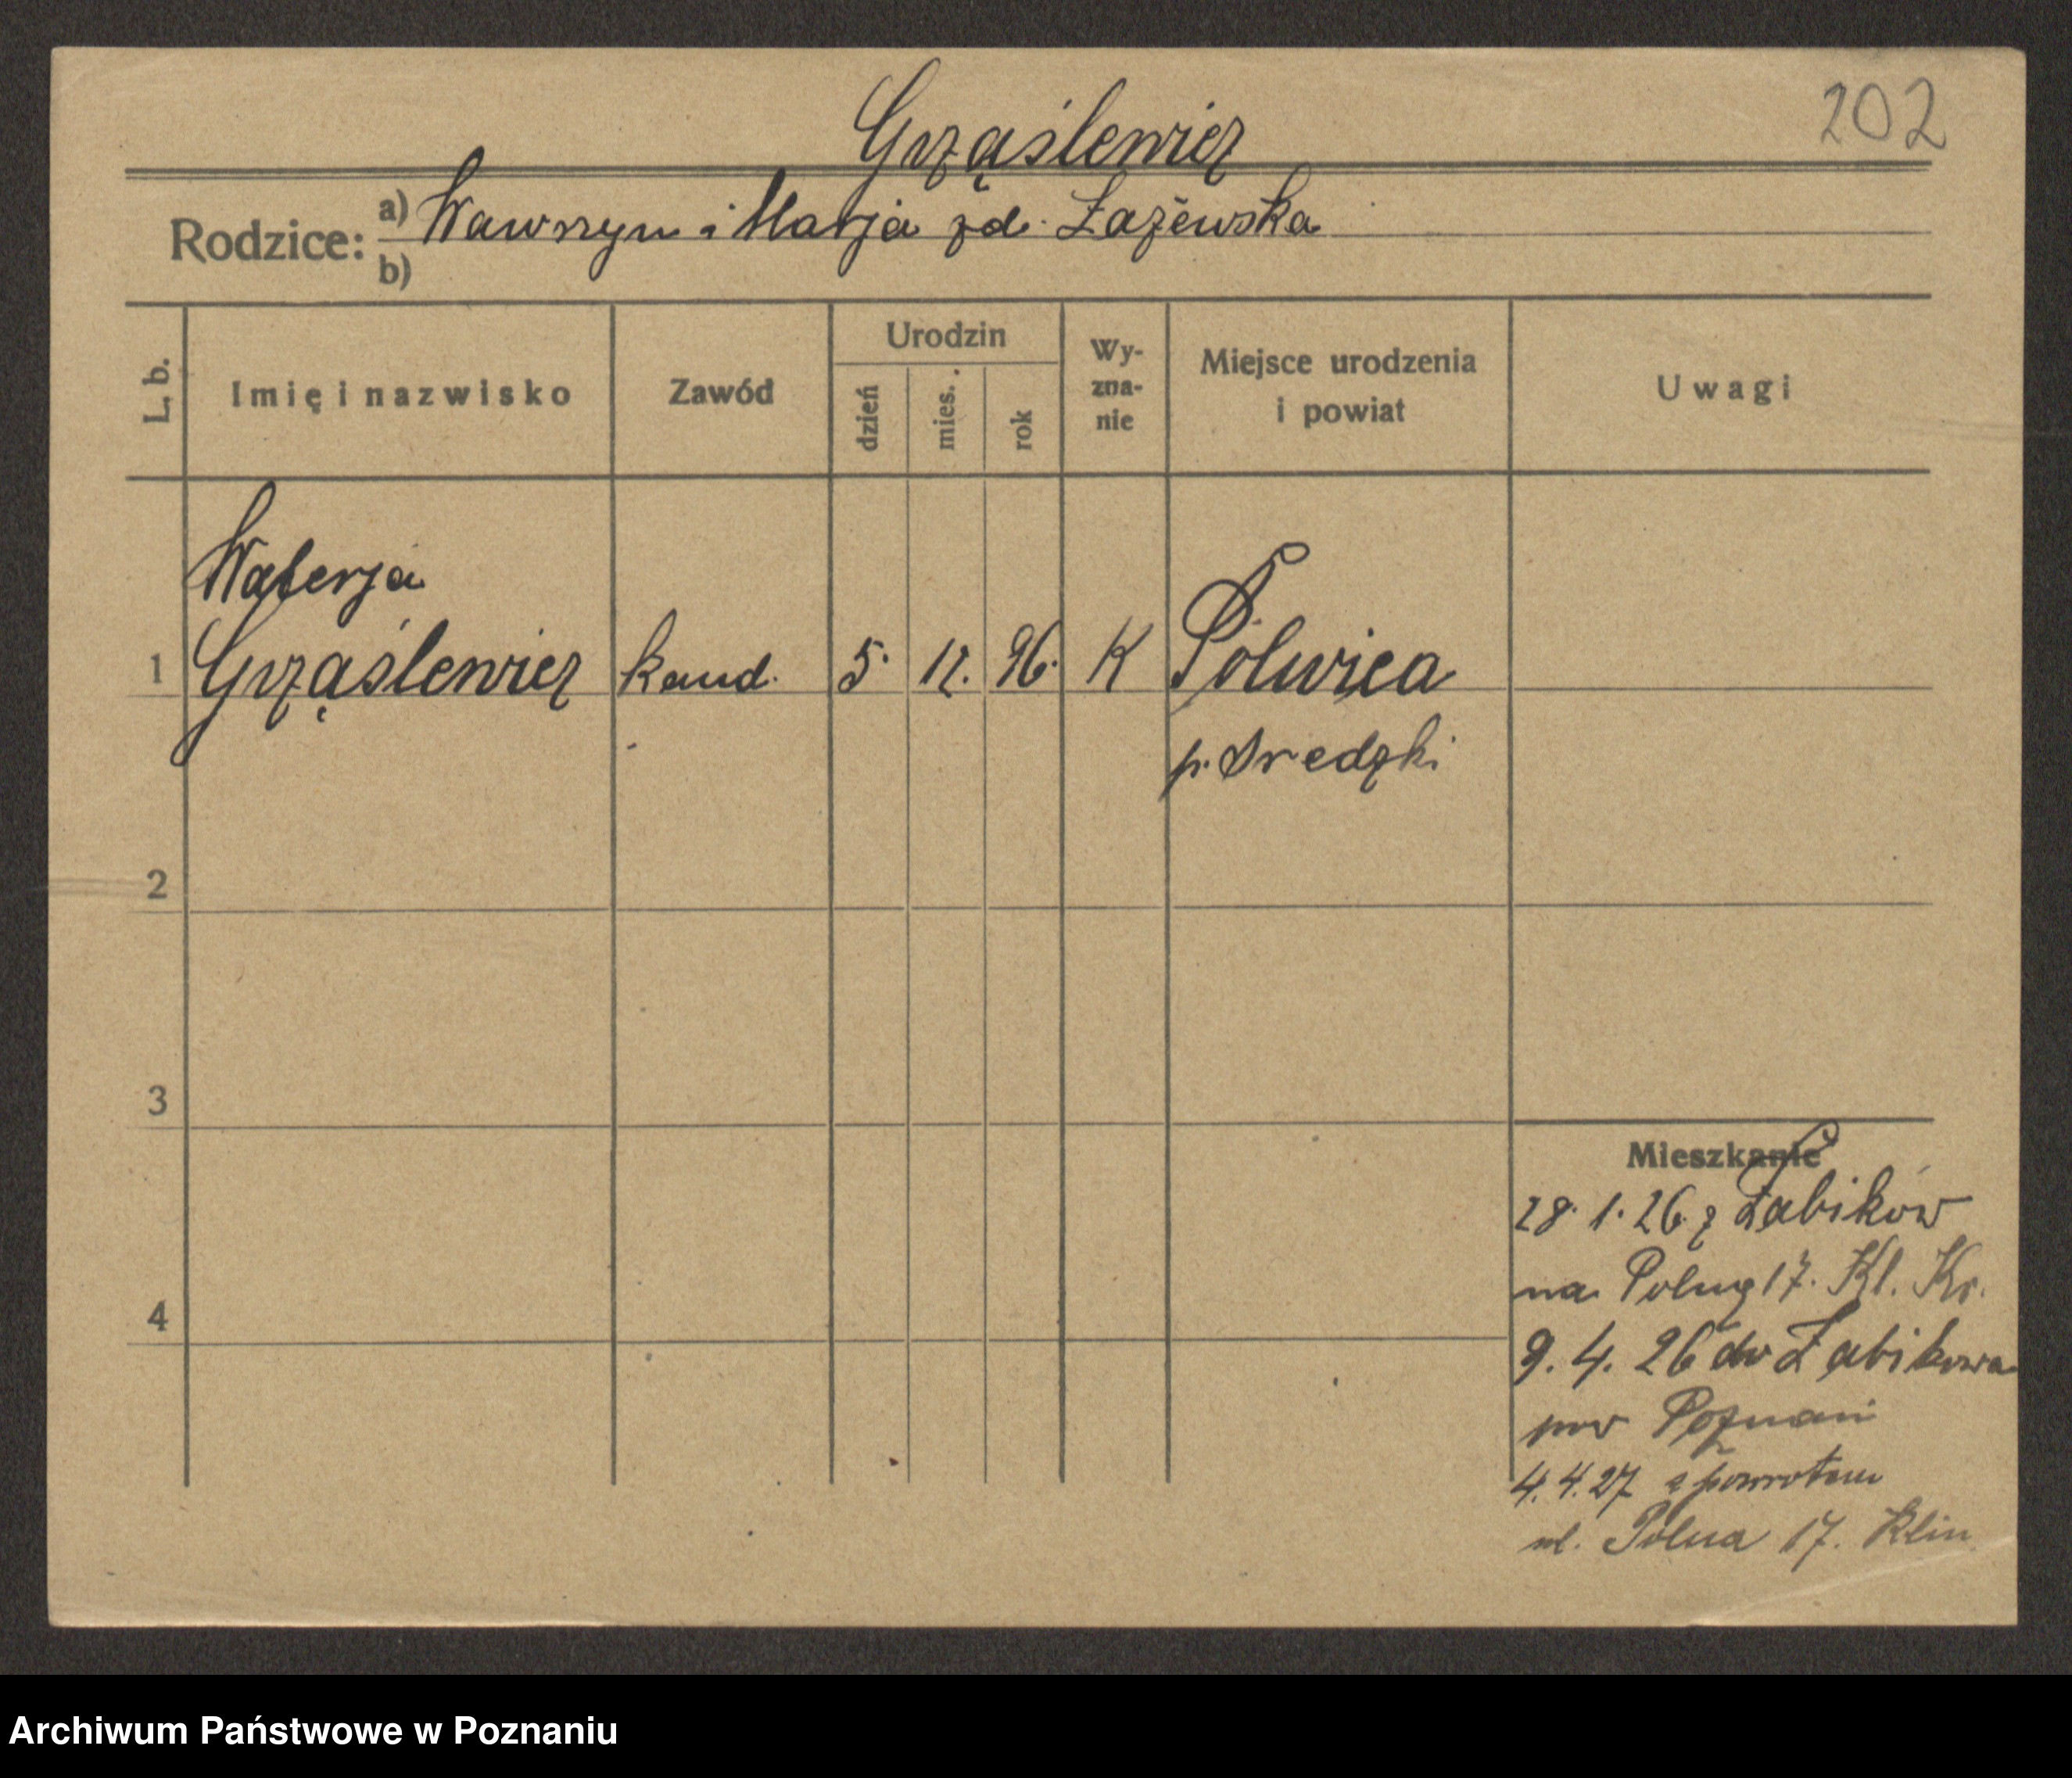 202
Grząślewicz
Rodzice: a) Wawrzyn i Marja zd. Łażewska
b)
L. b.
Imię i nazwisko
Zawód
Urodzin
dzień
mies.
rok
Wy-
zna-
nie
Miejsce urodzenia
i powiat
Uwagi
Walerja
1 Grząślewicz kand. 5. 12. 96. K Polwica
p. Sredzki
2
3
4
Mieszkanie
28. 1. 26. z Żabików
na Polną 17. Kl. Kr.
9. 4. 26 do Żabikowa
pow Poznań
4. 4. 27 z powrotem
ul. Polna 17. Klin
Archiwum Państwowe w Poznaniu